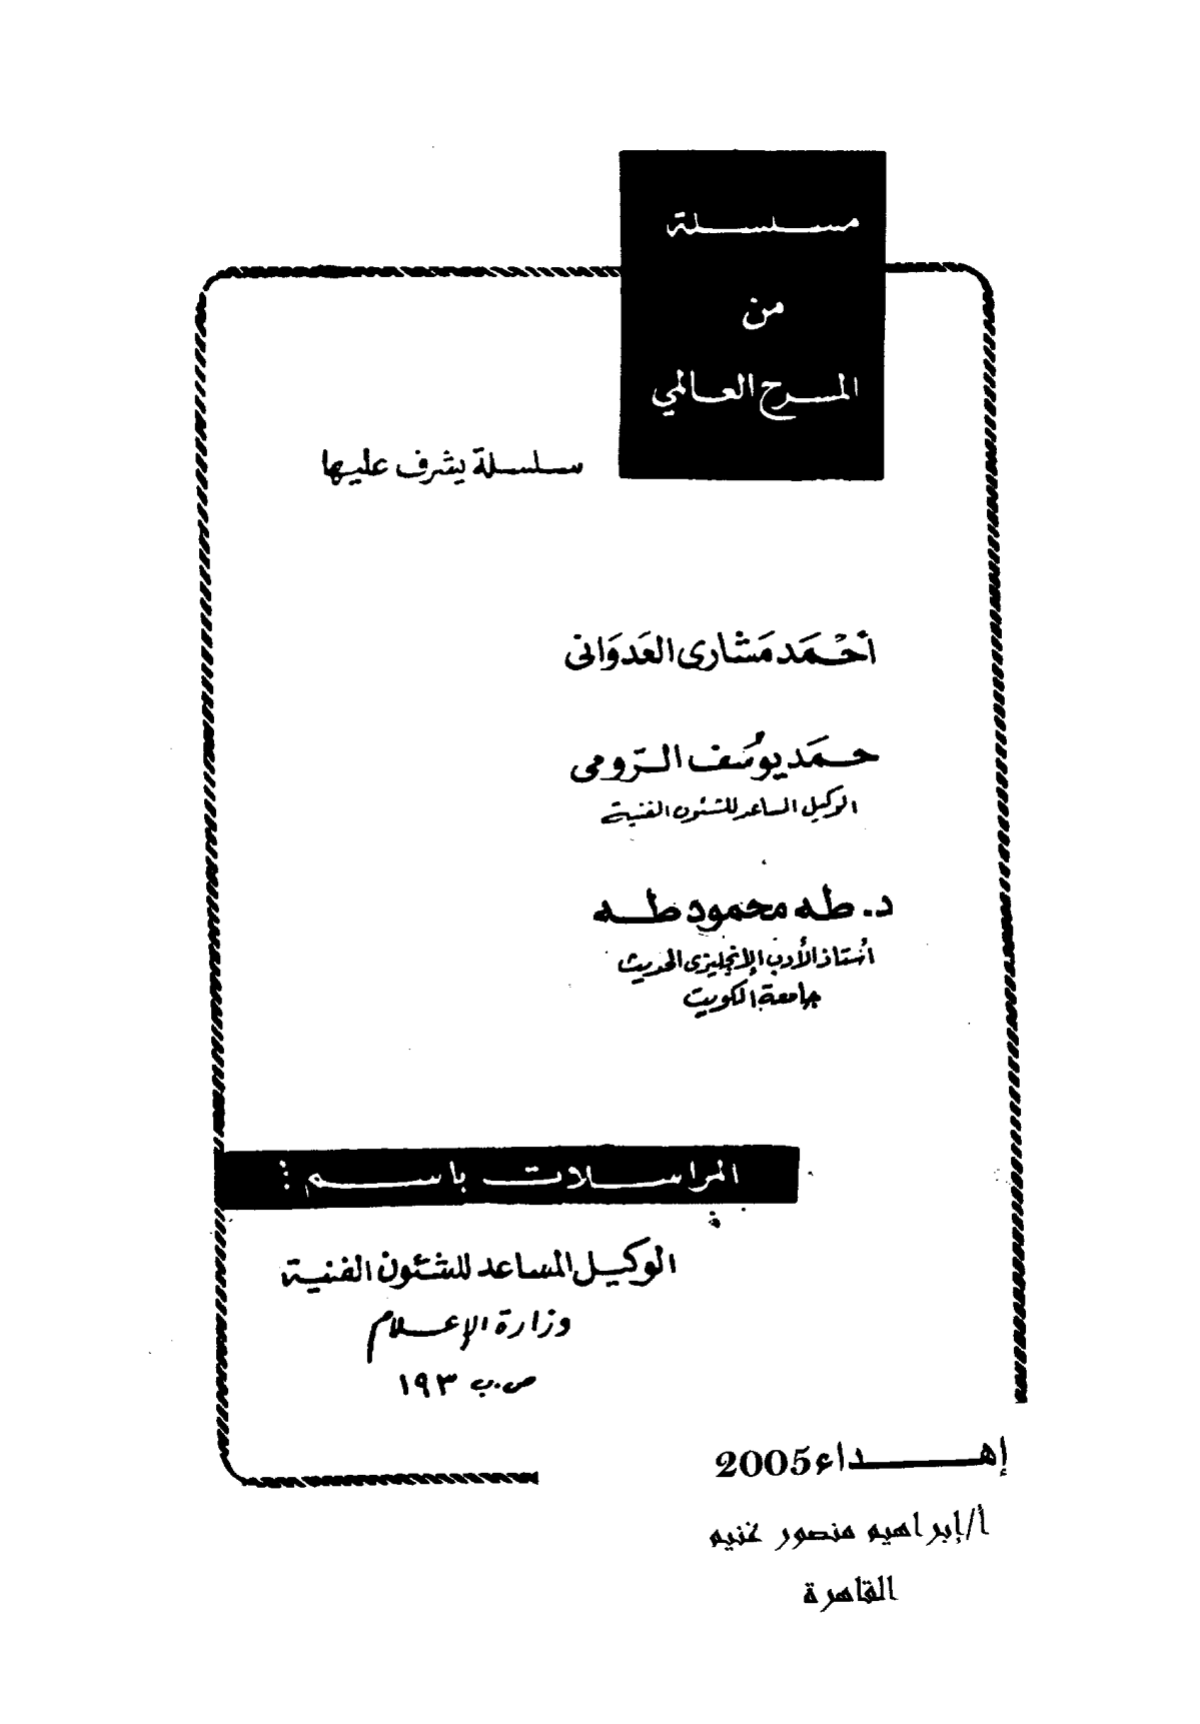 سلسلة
من
المسرح العالمي
سلسلة يشرف عليها
أحْمَد مَشارى العَدوَانى
حمَد يوسُف الرّومى
الوكيل المساعد للشئون الفنية
د. طه محمود طه
أستاذ الأدب الإنجليزى الحديث
جامعة الكويت
المراسلات باسم :
الوكيل المساعد للشئون الفنية
وزارة الإعلام
ص.ب ١٩٣
إهداء 2005
أ/إبراهيم منصور غنيم
القاهرة